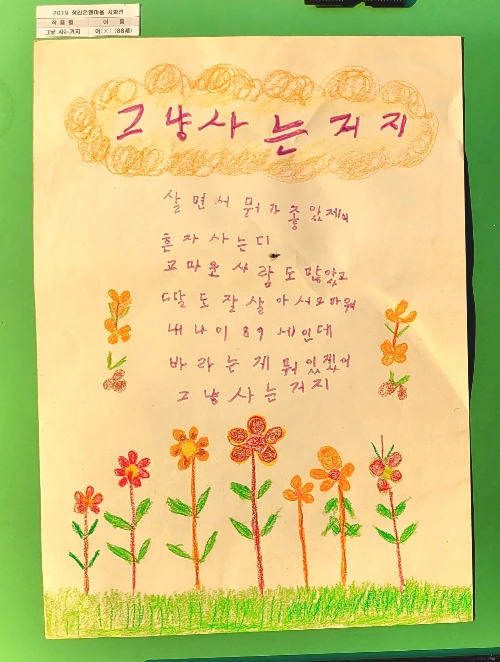 2019 시화전
작 품 명 이 름
그냥 사는거지 이○○ (88세)
그냥사는거지
살면서 뭐가
혼자사는디
고마운 사람도 많았고
딸도 잘살아서고마워
내나이 89세인데
바라는게 뭐있겠어
그냥사는거지